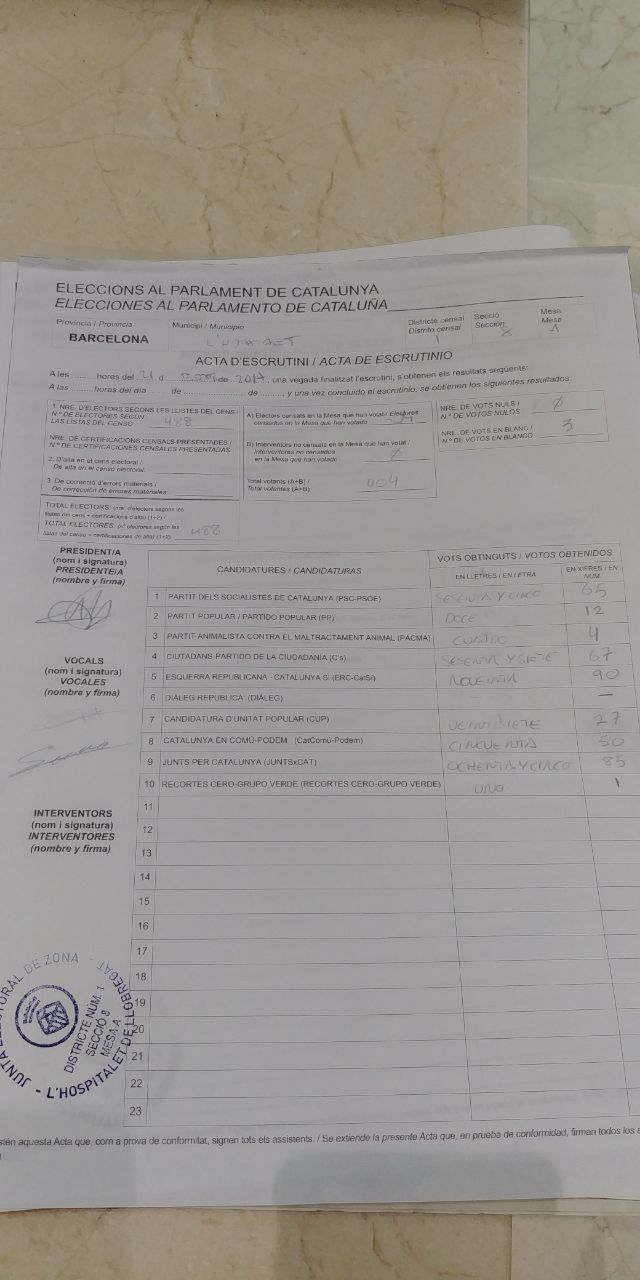 ELECCIONS AL PARLAMENT DE CATALUNYA
ELECCIONES AL PARLAMENTO DE CATALUÑA
Provincia / Provincia
BARCELONA
Municipi / Municipio
Districte censal
Distrito censal
1
Secció
Sección
8
Mesa
Mesa
A
ACTA D'ESCRUTINI / ACTA DE ESCRUTINIO
A les ........ hores del 21 d ........ de 2017, una vegada finalitzat l'escrutini, s'obtenen els resultats següents:
A las ........ horas del día ...... de ........ de ........, y una vez concluido el escrutinio, se obtienen los siguientes resultados:
1. NRE. D'ELECTORS SEGONS LES LLISTES DEL CENS /
N.º DE ELECTORES SEGÚN
LAS LISTAS DEL CENSO 488
NRE. DE CERTIFICACIONS CENSALS PRESENTADES /
N.º DE CERTIFICACIONES CENSALES PRESENTADAS
2. D'alta en el cens electoral /
De alta en el censo electoral:
3. De correcció d'errors materials /
De corrección de errores materiales:
TOTAL ELECTORS: (nre. d'electors segons les
llistes del cens + certificacions d'alta) (1+2) /
TOTAL ELECTORES: (n.º electores según las
listas del censo + certificaciones de alta) (1+2) 488
A) Electors censats en la Mesa que han votat / Electores
censados en la Mesa que han votado
B) Interventors no censats en la Mesa que han votat /
Interventores no censados
en la Mesa que han votado Ø
Total votants (A+B) /
Total votantes (A+B) 404
NRE. DE VOTS NULS /
N.º DE VOTOS NULOS Ø
NRE. DE VOTS EN BLANC /
N.º DE VOTOS EN BLANCO 3
PRESIDENT/A
(nom i signatura)
PRESIDENTE/A
(nombre y firma)
VOCALS
(nom i signatura)
VOCALES
(nombre y firma)
INTERVENTORS
(nom i signatura)
INTERVENTORES
(nombre y firma)
CANDIDATURES / CANDIDATURAS
VOTS OBTINGUTS / VOTOS OBTENIDOS
EN LLETRES / EN LETRA
EN XIFRES / EN NÚM.
1 PARTIT DELS SOCIALISTES DE CATALUNYA (PSC-PSOE) SESENTA Y CINCO 65
2 PARTIT POPULAR / PARTIDO POPULAR (PP) DOCE 12
3 PARTIT ANIMALISTA CONTRA EL MALTRACTAMENT ANIMAL (PACMA) CUATRO 4
4 CIUTADANS-PARTIDO DE LA CIUDADANÍA (C's) SESENTA Y SIETE 67
5 ESQUERRA REPUBLICANA - CATALUNYA SÍ (ERC-CatSí) NOVENTA 90
6 DIÀLEG REPUBLICÀ (DIÀLEG) —
7 CANDIDATURA D'UNITAT POPULAR (CUP) VEINTISIETE 27
8 CATALUNYA EN COMÚ-PODEM (CatComú-Podem) CINCUENTA 50
9 JUNTS PER CATALUNYA (JUNTSxCAT) OCHENTA Y CINCO 85
10 RECORTES CERO-GRUPO VERDE (RECORTES CERO-GRUPO VERDE) UNO 1
11
12
13
14
15
16
17
18
19
20
21
22
23
JUNTA ELECTORAL DE ZONA - L'HOSPITALET DE LLOBREGAT
DISTRICTE NÚM. 1
SECCIÓ 8
MESA A
estén aquesta Acta que, com a prova de conformitat, signen tots els assistents. / Se extiende la presente Acta que, en prueba de conformidad, firman todos los